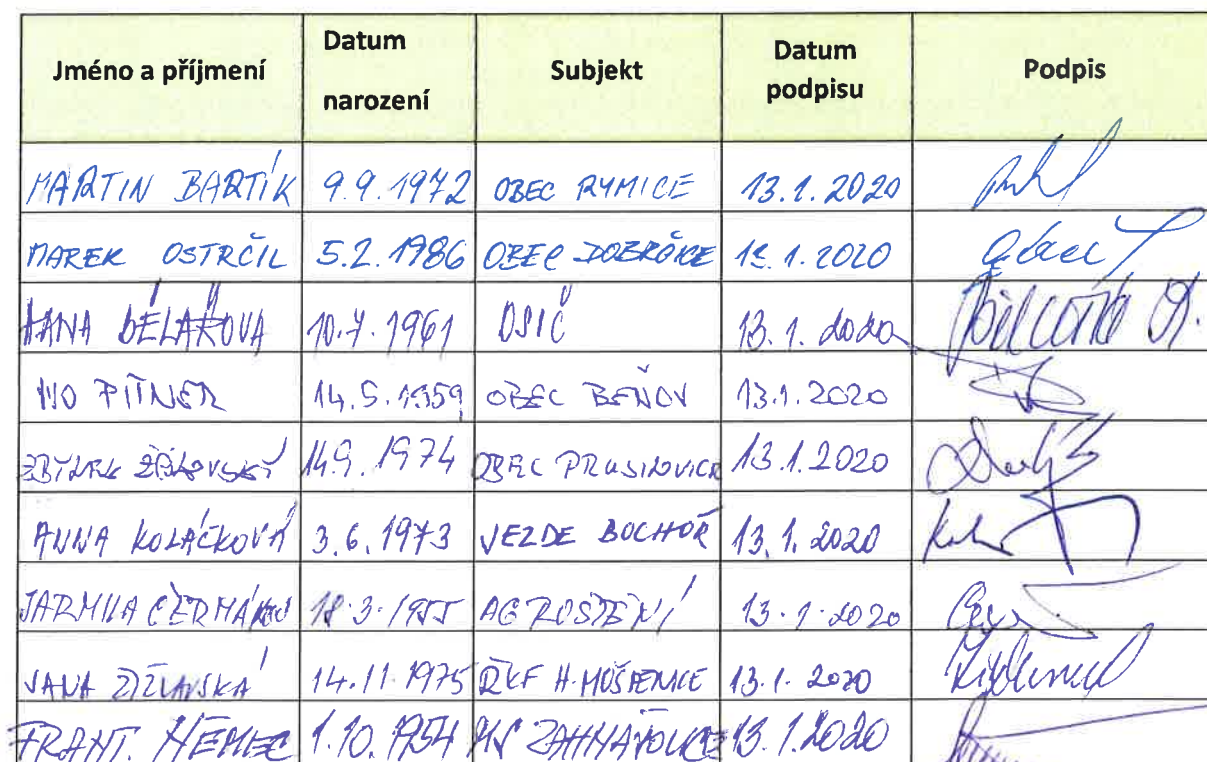 Jméno a příjmení Datum narození Subjekt Datum podpisu Podpis
MARTIN BARTÍK 9.9.1972 OBEC RYMICE 13.1.2020
MAREK OSTRČIL 5.2.1986 OBEC DOBRČICE 13.1.2020
HANA BĚLAŘOVÁ 10.7.1961 OSIČ 13.1.2020
IVO PITNER 14.5.1959 OBEC BEŇOV 13.1.2020
ZBYNĚK 14.9.1974 OBEC PRUSINOVICE 13.1.2020
ANNA KOLÁČKOVÁ 3.6.1973 VEZDE BOCHOŘ 13.1.2020
JARMILA ČERMÁKOVÁ 18.3.1955 13.1.2020
JANA 14.11.1975 ŘKF H. MOŠTĚNICE 13.1.2020
FRANT. NĚMEC 1.10.1954 MS ZAHNAŠOVICE 13.1.2020